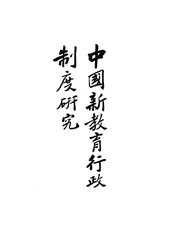 中國新教育行政
制度研究